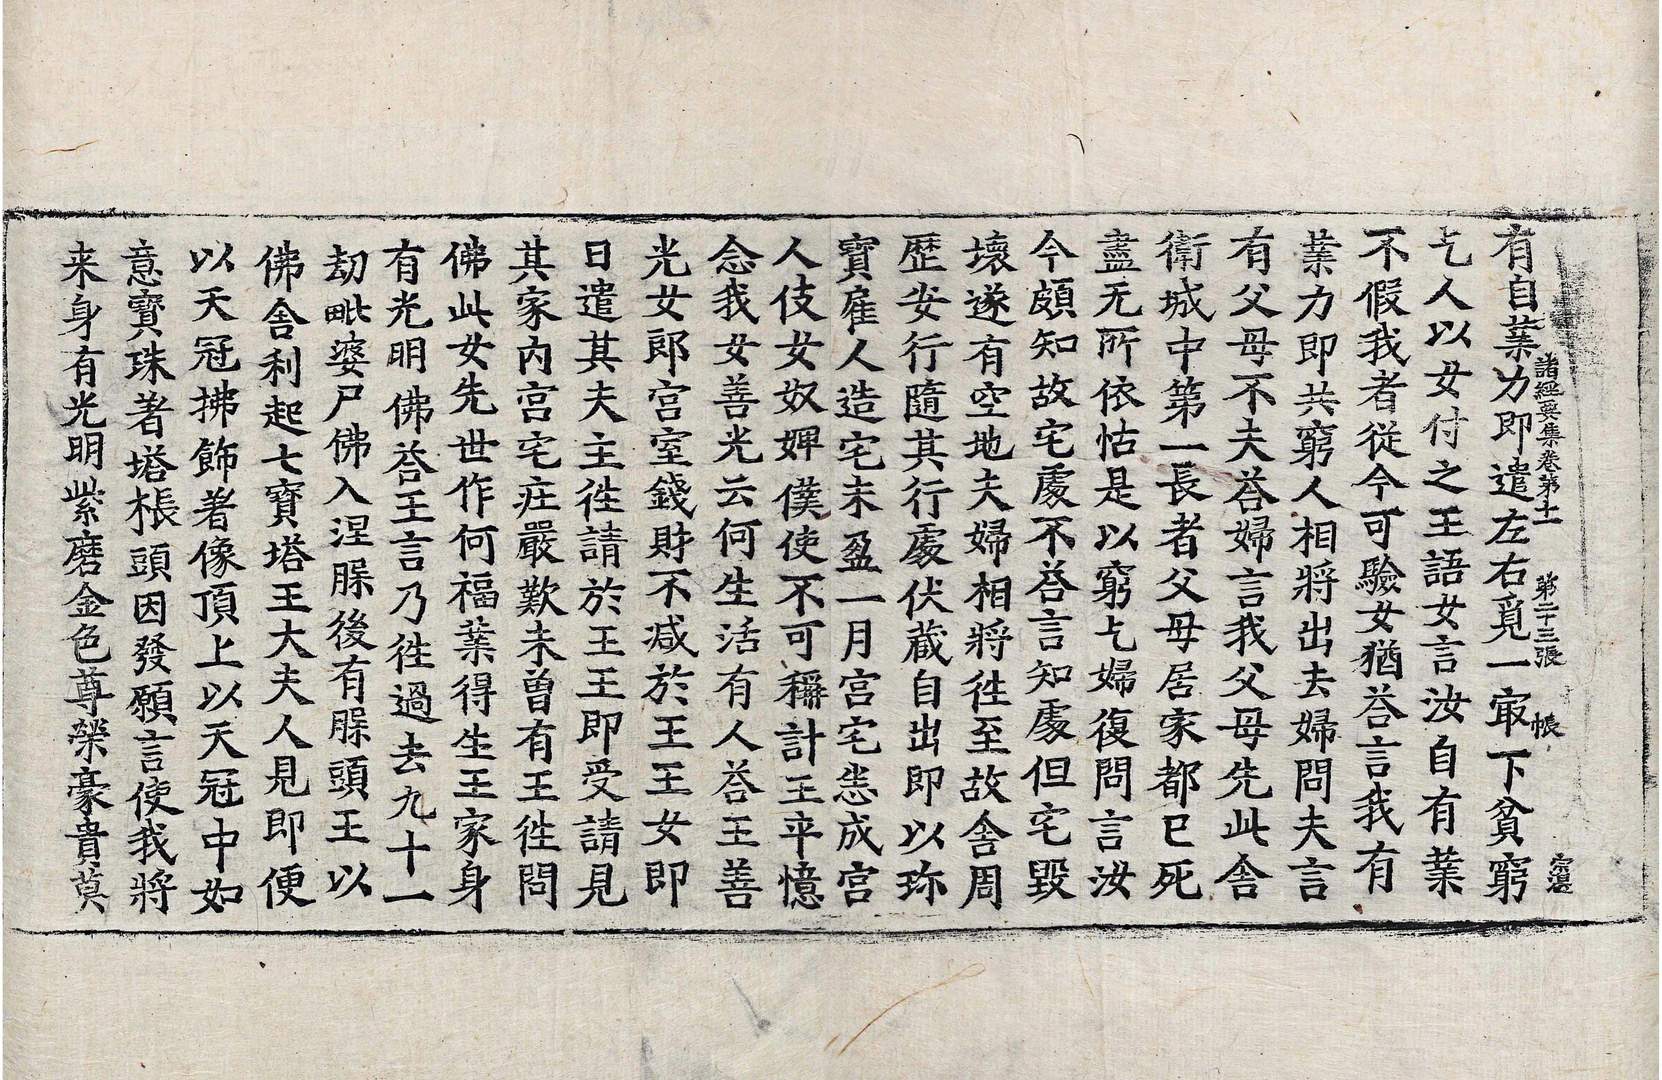 諸經要集卷第十一 第二十三張 帳
有自業力即遣左右覓一㝡下貧窮
乞人以女付之王語女言汝自有業
不假我者從今可驗女猶荅言我有
業力即共窮人相將出去婦問夫言
有父母不夫荅婦言我父母先此舍
衛城中第一長者父母居家都已死
盡无所依怙是以窮乞婦復問言汝
今頗知故宅處不荅言知處但宅毀
壞遂有空地夫婦相將徃至故舍周
歷安行隨其行處伏藏自出即以珎
寶雇人造宅未盈一月宮宅悉成宮
人伎女奴婢僕使不可稱計王卒憶
念我女善光云何生活有人荅王善
光女郎宮室錢財不減於王王女即
日遣其夫主徃請於王王即受請見
其家內宮宅庄嚴歎未曾有王徃問
佛此女先世作何福業得生王家身
有光明佛荅王言乃徃過去九十一
劫毗婆尸佛入涅槃後有槃頭王以
佛舍利起七寶塔王大夫人見即便
以天冠拂飾著像頂上以天冠中如
意寶珠著塔棖頭因發願言使我將
来身有光明紫磨金色尊榮豪貴莫